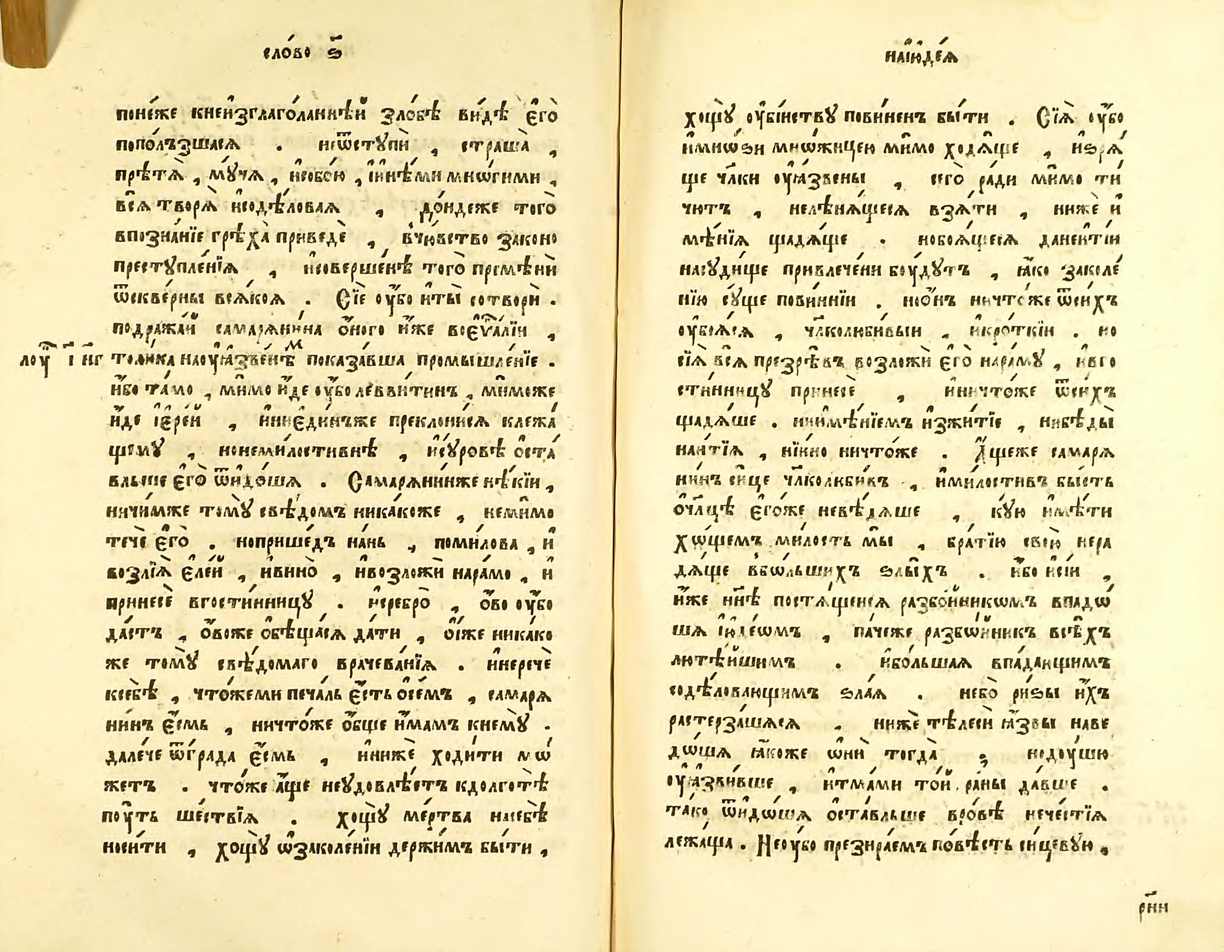 сло́во ѕ҃
поне́же кнеи҆зглаго́ланнѣй зло́бѣ ви́дѣ є҆го̀
попо́лъзшаея . неѿступѝ , страша̀ ,
прѣтѧ̀ , мꙋ́чѧ , небо́ю , и҆и́нѣми мно́гими ,
всѧ̀ творѧ̀ исодѣ́ловаѧ , до́ндеже того̀
впозна́нїе грѣха̀ приведѐ , вчю́вство законо
престꙋпле́нїѧ , исовершенѣ того̀ премѣнѝ
ѿскве́рны всѧ́коѧ . Сїѐ оу҆́бо иты̀ сотворѝ .
подража́й самарѧни́на о҆́ного и҆́же воеѵⷢ҇а́лїи ,
лоу҃ і҃ нг толи́ка наоуѧ҆́звенѣⷨ показа́вша промышле́нїе .
и҆́бо та́мо , ми́мо и҆́де оу҆́бо леввити́нъ , мимо́же
и҆́де і҆ере́й , ини є҆ди́нъже преклони́сѧ клежа́
щемꙋ̀ , нонеми́лостивнѣ , исꙋ́ровѣ оста́
вльше є҆го̀ ѿидо́ша . Самарѧни́нже нѣ́кїи ,
ничи́мже томꙋ̀ свѣ́домъ ника́коже , неми́мо
течѐ є҆го̀ . ноприше́дъ нань , поми́лова , и҆
возлїѧ̀ є҆ле́й , ивино̀ , ивозложѝ нара́мо , и҆
принесѐ вгости́нницꙋ . исребро̀ , о҆́во оу҆́бо
да́стъ , о҆́воже обѣща́сѧ да́ти , ѡ҆иже ника́ко
же томꙋ̀ свѣ́домаго врачева́нїѧ . инеречѐ
ксебѣ̀ , что́жеми печа́ль є҆́сть осе́мъ , самарѧ
ни́нъ є҆́смь , ничто́же о҆́бще и҆́мамъ кнемꙋ̀ .
дале́че ѿгра́да є҆́смь , инижѐ ходи́ти мо
жетъ . что́же а҆́ще неꙋдовлѣ́етъ кдолготѣ̀
поу́тъ ше́ствїѧ . хощꙋ̀ ме́ртва насебѣ̀
носи́ти , хощꙋ̀ ѡ҆заколе́нїи держи́мъ бы́ти ,
наїю҆де́ѧ
хощꙋ̀ оу҆бі́йствꙋ пови́ненъ бы́ти . Сїѧ̀ оу҆́бо
и҆мно́ѕи мно́жицею ми́мо ходѧ́ще , иѕрѧ́
ще чл҃ки оу҆ѧ́звены , сего̀ ра́ди ми́мо ти
чютъ , нелѣнѧ́щеесѧ взѧ́ти , нижѐ и҆
мѣ́нїѧ щадѧ́ще . нобоѧ́щеесѧ данентїи
насꙋди́ще привлече́ни боу́дꙋтъ , ꙗ҆́ко заколе́
нїю сꙋ́ще пови́ннїи . но о҆́нъ ничто́же ѿси́хъ
оу҆боѧ́сѧ , чл҃колюби́выи , икро́ткїи . но
сїѧ̀ всѧ̀ презрѣ́въ возложѝ є҆го̀ нара́мꙋ , ивго
сти́нницꙋ принесѐ , иничто́же ѿси́хъ
щадѧ́ше . ниимѣ́нїемъ и҆зжи́тїе , нибѣды̀
наи́тїѧ , ни и҆́но ничто́же . А҆́щеже самарѧ
ни́нъ си́це чл҃колюби́въ , имилости́въ бы́сть
ѡ҆чл҃цѣ є҆го́же невѣ́дѧше , кꙋ́ю имѣ́ти
хо́щемъ ми́лость мы̀ , бра́тїю свою̀ нера
дѧ́ще вбо́льшихъ ѕлы́хъ . и҆́бо исїѝ ,
и҆́же нн҃ѣ постѧ́щеисѧ разбо́йникѡмъ впадо́
шѧ і҆ꙋде́ѡмъ , па́чеже разбо́йникъ всѣ́хъ
лютѣ́йшимъ . ибо́льшаѧ впа́дающимъ
содѣ́ловающимъ ѕла́ѧ . небо̀ ри́зы и҆́хъ
растерза́шасѧ . нижѐ тѣлесѝ ꙗ҆́звы наве
до́шѧ ꙗ҆́коже ѡ҆нѝ тогда̀ , нодоу́шю
оу҆ѧзви́вше , итма́ми то́й ра́ны да́вше .
та́ко ѿидо́шѧ оста́вльше вро́вѣ нече́стїѧ
лежа́ща . Не оу҆́бо презира́емъ по́вѣсть сицевꙋ́ю ,
рн҃и